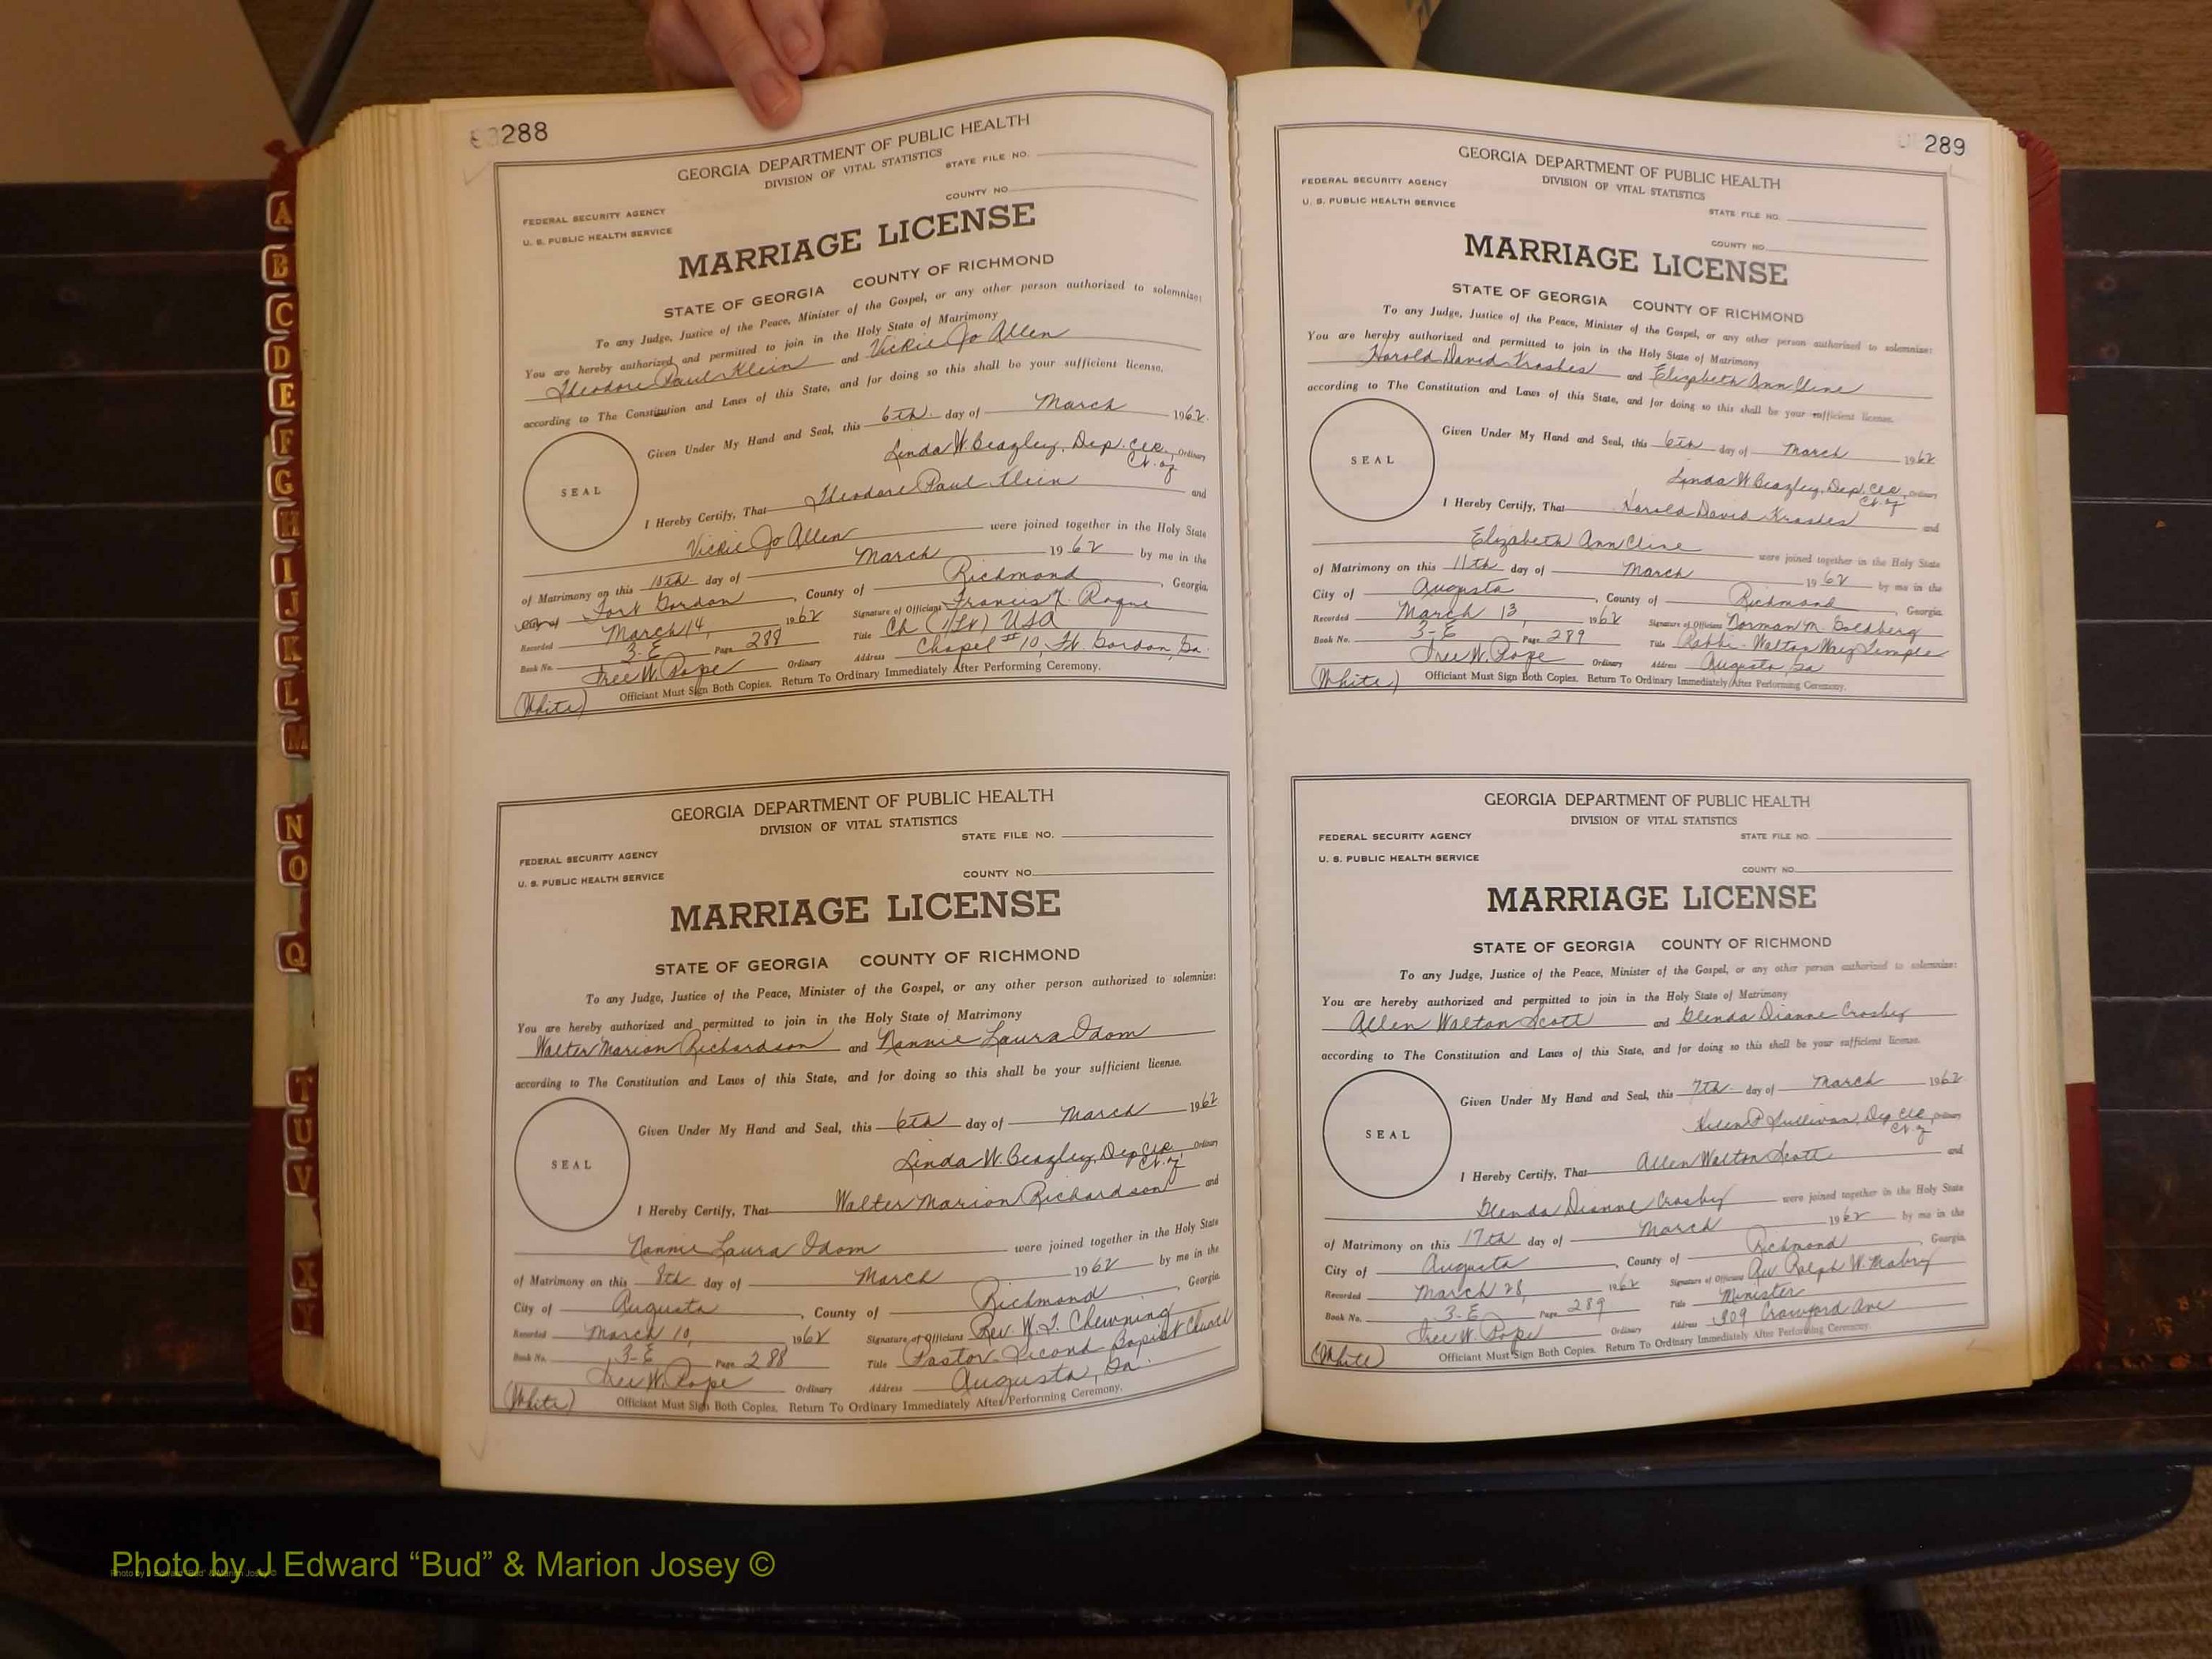 288
GEORGIA DEPARTMENT OF PUBLIC HEALTH
DIVISION OF VITAL STATISTICS
STATE FILE NO.
COUNTY NO.
FEDERAL SECURITY AGENCY
U. S. PUBLIC HEALTH SERVICE
MARRIAGE LICENSE
STATE OF GEORGIA COUNTY OF RICHMOND
To any Judge, Justice of the Peace, Minister of the Gospel, or any other person authorized to solemnize:
You are hereby authorized and permitted to join in the Holy State of Matrimony
Theodore Paul Klein and Vickie Jo Allen
according to The Constitution and Laws of this State, and for doing so this shall be your sufficient license.
Given Under My Hand and Seal, this 6th day of March 1962.
Linda W. Beazley, Dep. Clk. Ordinary
Ct. of
SEAL
I Hereby Certify, That Theodore Paul Klein and
Vickie Jo Allen were joined together in the Holy State
of Matrimony on this 10th day of March 1962 by me in the
City of Fort Gordon, County of Richmond, Georgia.
Recorded March 14, 1962 Signature of Officiant Francis
Book No. 3-E Page 288 Title Ch (1/Lt) USA
Free W. Pope Ordinary Address Chapel #10, Ft. Gordon, Ga.
(White) Officiant Must Sign Both Copies. Return To Ordinary Immediately After Performing Ceremony.
GEORGIA DEPARTMENT OF PUBLIC HEALTH
DIVISION OF VITAL STATISTICS
STATE FILE NO.
FEDERAL SECURITY AGENCY
U. S. PUBLIC HEALTH SERVICE
COUNTY NO.
MARRIAGE LICENSE
STATE OF GEORGIA COUNTY OF RICHMOND
To any Judge, Justice of the Peace, Minister of the Gospel, or any other person authorized to solemnize:
You are hereby authorized and permitted to join in the Holy State of Matrimony
Walter Marion Richardson and Nannie Laura Odom
according to The Constitution and Laws of this State, and for doing so this shall be your sufficient license.
Given Under My Hand and Seal, this 6th day of March 1962
Linda W. Beazley, Dep Clk Ordinary
Ct. of
SEAL
I Hereby Certify, That Walter Marion Richardson and
Nannie Laura Odom were joined together in the Holy State
of Matrimony on this 8th day of March 1962 by me in the
City of Augusta, County of Richmond, Georgia
Recorded March 10, 1962 Signature of Officiant Rev. W. J. Chewning
Book No. 3-E Page 288 Title Pastor Second Baptist Church
Free W. Pope Ordinary Address Augusta, Ga.
(White) Officiant Must Sign Both Copies. Return To Ordinary Immediately After Performing Ceremony.
289
GEORGIA DEPARTMENT OF PUBLIC HEALTH
DIVISION OF VITAL STATISTICS
FEDERAL SECURITY AGENCY
U. S. PUBLIC HEALTH SERVICE
STATE FILE NO.
COUNTY NO.
MARRIAGE LICENSE
STATE OF GEORGIA COUNTY OF RICHMOND
To any Judge, Justice of the Peace, Minister of the Gospel, or any other person authorized to solemnize:
You are hereby authorized and permitted to join in the Holy State of Matrimony
Harold David Krashes and Elizabeth Ann Cline
according to The Constitution and Laws of this State, and for doing so this shall be your sufficient license.
Given Under My Hand and Seal, this 6th day of March 1962
Linda W Beazley, Dep. Clk, Ordinary
Ct. of
SEAL
I Hereby Certify, That Harold David Krashes and
Elizabeth Ann Cline were joined together in the Holy State
of Matrimony on this 11th day of March 1962 by me in the
City of Augusta, County of Richmond, Georgia
Recorded March 13, 1962 Signature of Officiant Norman M. Goldberg
Book No. 3-E Page 289 Title Rabbi - Walton Way Temple
Free W. Pope Ordinary Address Augusta, Ga
(White) Officiant Must Sign Both Copies. Return To Ordinary Immediately After Performing Ceremony.
GEORGIA DEPARTMENT OF PUBLIC HEALTH
DIVISION OF VITAL STATISTICS
FEDERAL SECURITY AGENCY
STATE FILE NO.
U. S. PUBLIC HEALTH SERVICE
COUNTY NO.
MARRIAGE LICENSE
STATE OF GEORGIA COUNTY OF RICHMOND
To any Judge, Justice of the Peace, Minister of the Gospel, or any other person authorized to solemnize:
You are hereby authorized and permitted to join in the Holy State of Matrimony
Allen Walton Scott and Glenda Dianne Crosby
according to The Constitution and Laws of this State, and for doing so this shall be your sufficient license.
Given Under My Hand and Seal, this 7th day of March 1962
Helen P Sullivan, Dep Clk, Ordinary
Ct. of
SEAL
I Hereby Certify, That Allen Walton Scott and
Glenda Dianne Crosby were joined together in the Holy State
of Matrimony on this 17th day of March 1962 by me in the
City of Augusta, County of Richmond, Georgia
Recorded March 28, 1962 Signature of Officiant Ralph W. Mabry
Book No. 3-E Page 289 Title Minister
Free W. Pope Ordinary Address 809 Crawford Ave
(White) Officiant Must Sign Both Copies. Return To Ordinary Immediately After Performing Ceremony.
A
B
C
D
E
F
G
H
I
J
K
L
M
N
O
Q
T
U
V
X
Y
Photo by J Edward “Bud” & Marion Josey ©
Photo by J Edward “Bud” & Marion Josey ©